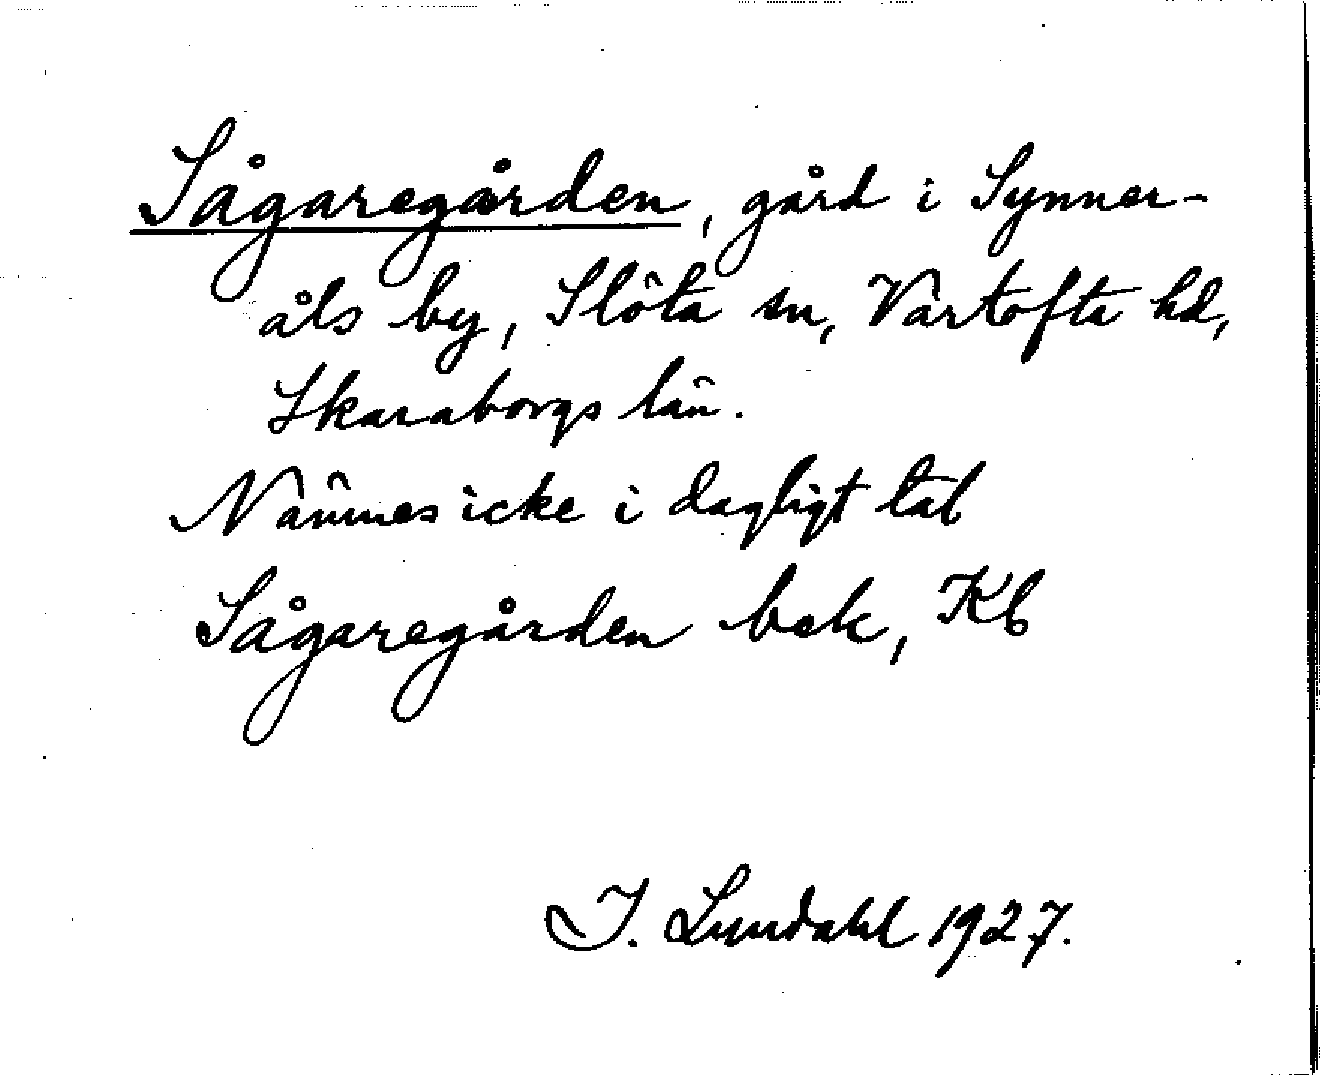 Sågaregården, gård i Synner-
åls by, Slöta sn, Vartofta hd,
Skaraborgs län.
Nämnes icke i dagligt tal
Sågaregården bok, Kb
I. Lundahl 1927.